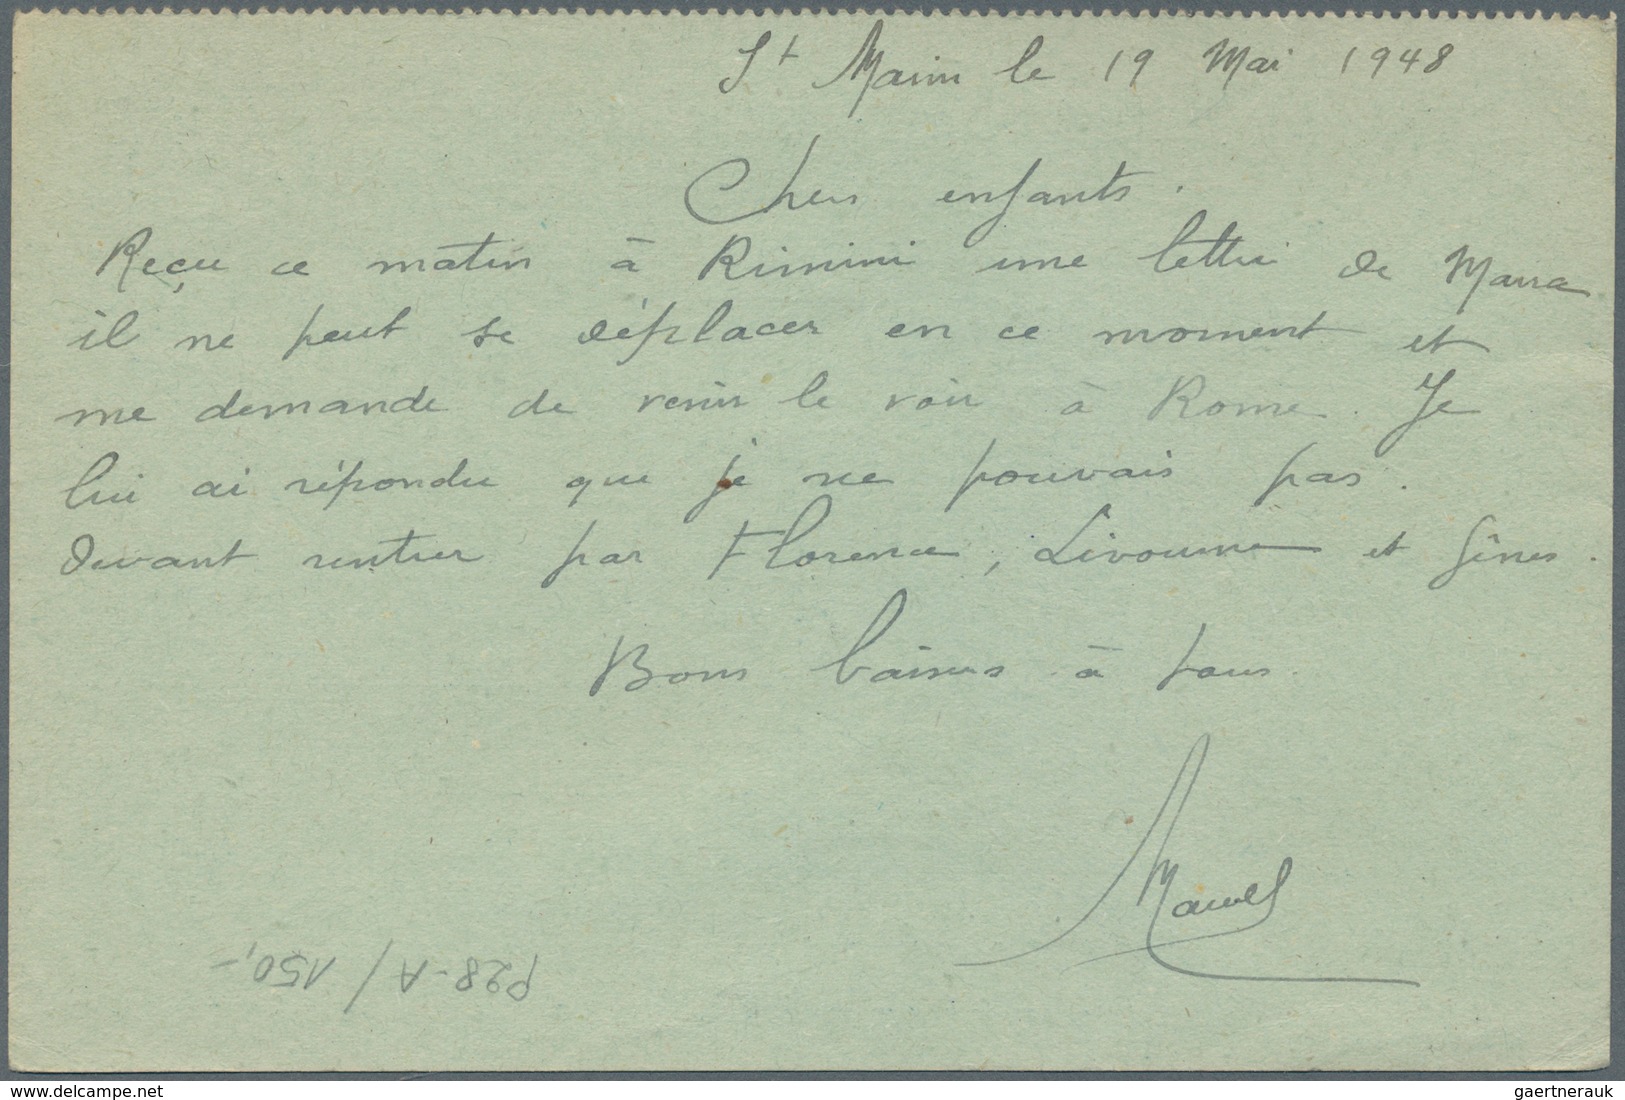 St Marin le 19 Mai 1948
Chers enfants.
Reçu ce matin à Rimini une lettre de
il ne peut se déplacer en ce moment et
me demande de venir le voir à Rome. Je
lui ai répondu que je ne pouvais pas.
Devant rentrer par Florence, Livourne et Gênes.
Bons baisers à tous.
Marcel
P28-A/150,-
Images are copyrighted
gaertnerauk